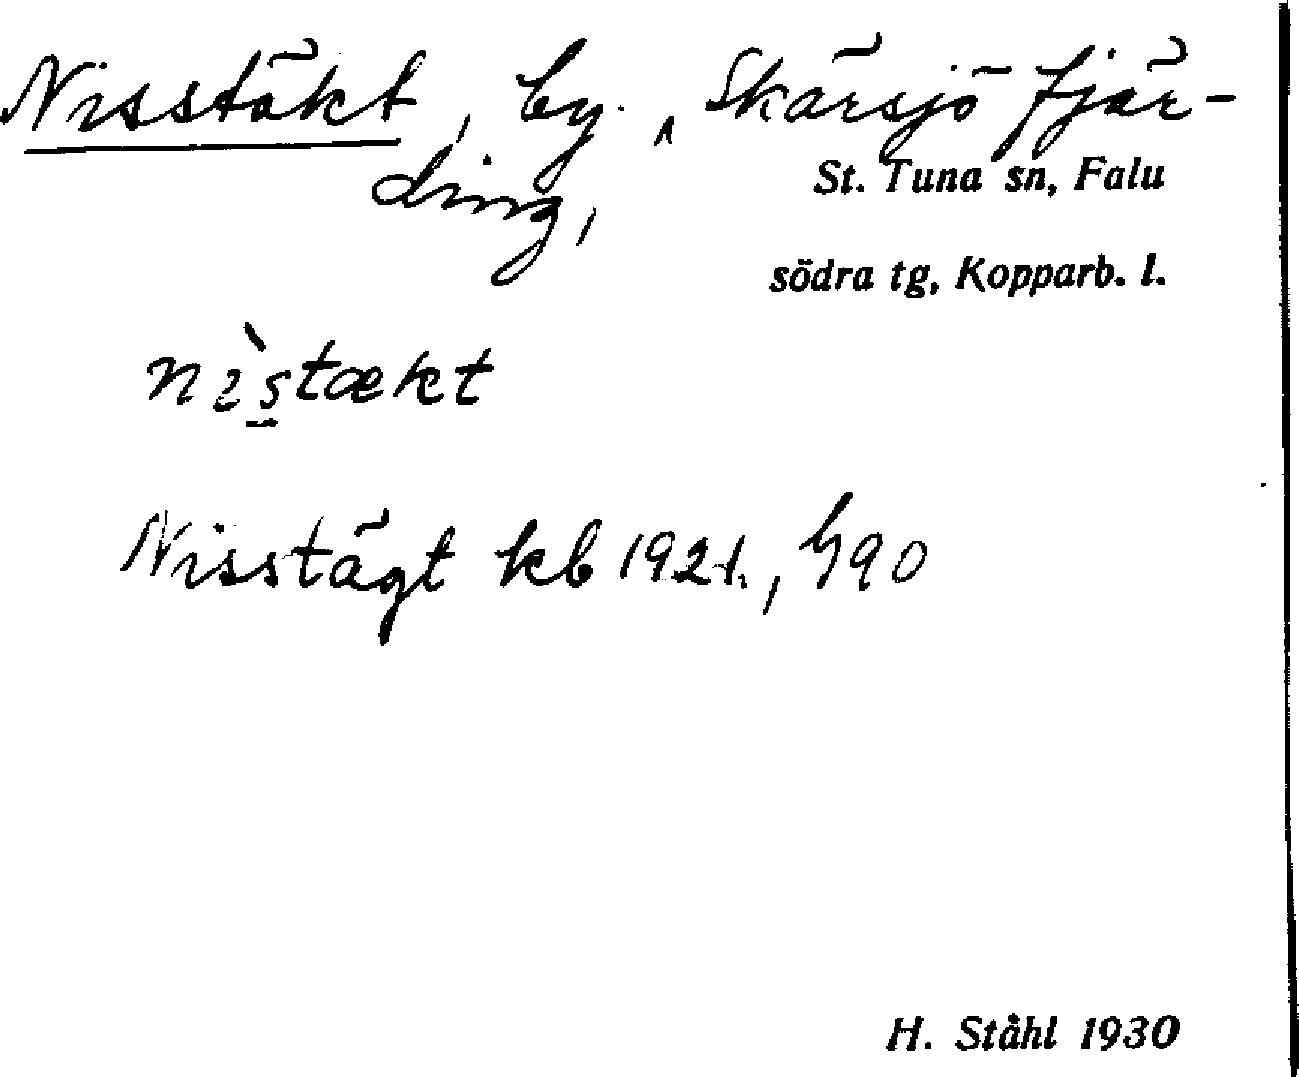 Nisstäkt, by. ʌ Skärsjö fjär-
ding,
St. Tuna sn, Falu
södra tg, Kopparb. l.
nìstækt
Nisstägt kb 1921., 490
H. Ståhl 1930